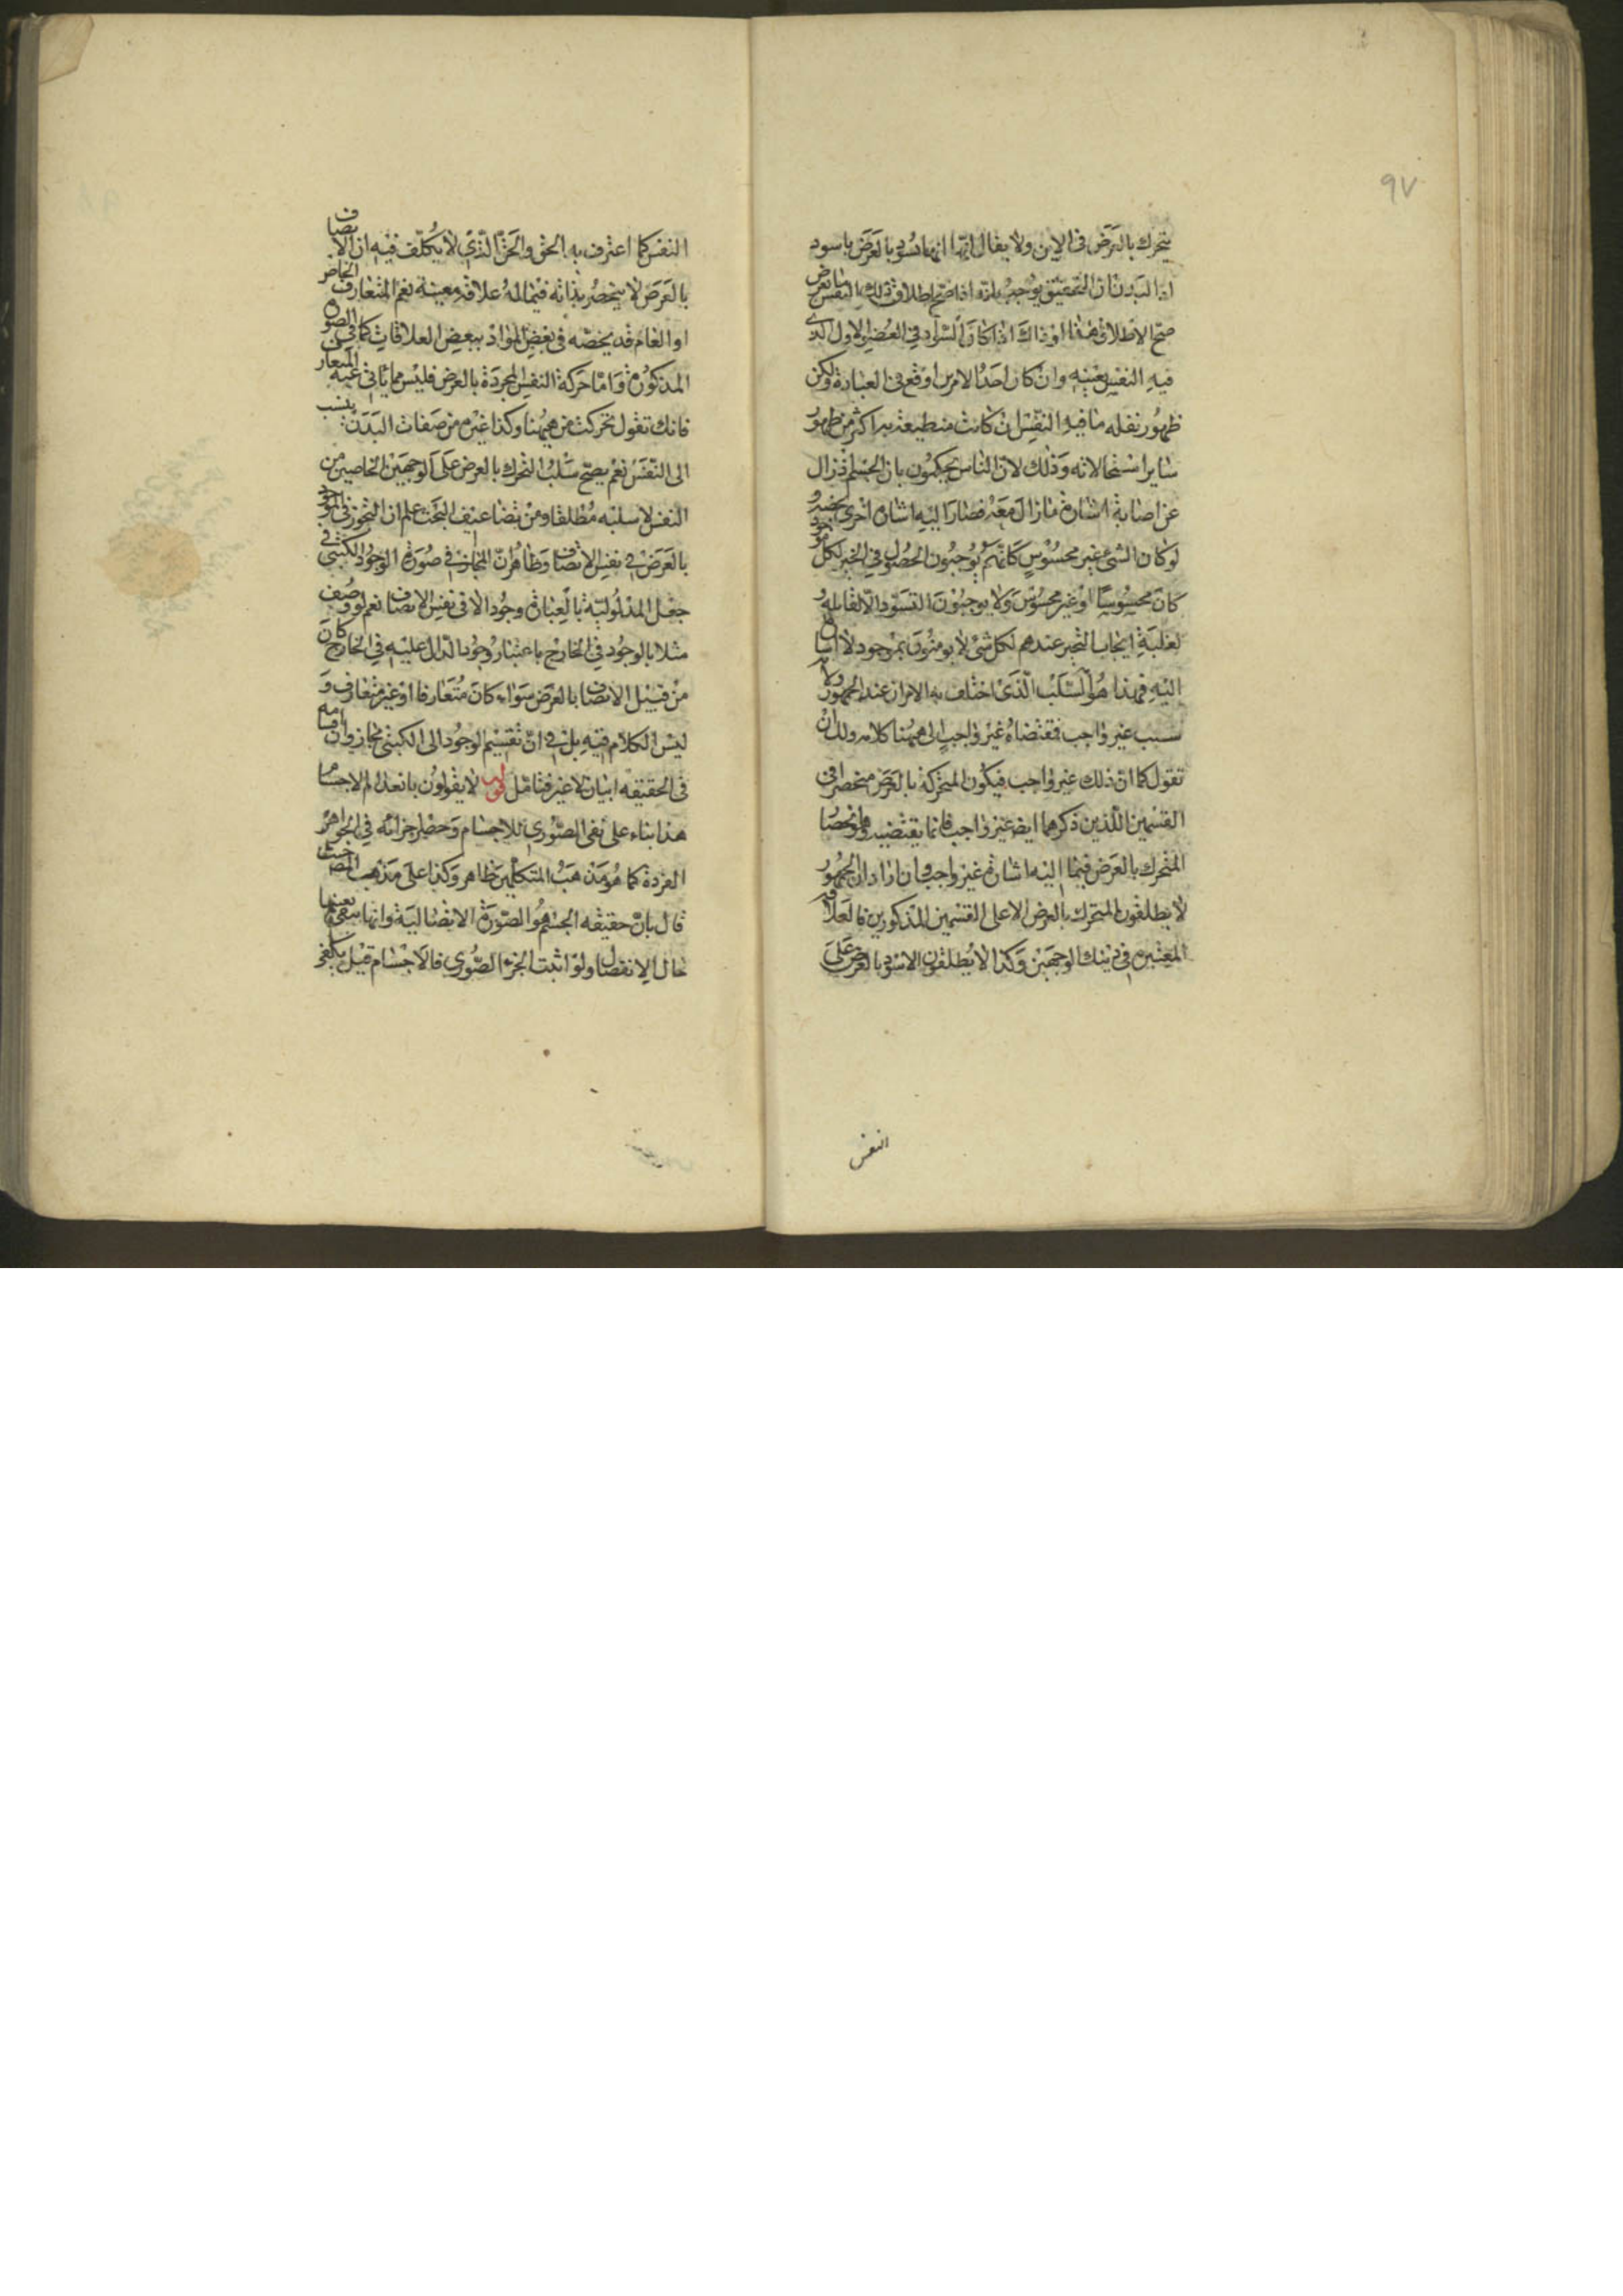 ٩٧
يتحرك بالعرض فى الاين ولا يقال انها انما تسود بالعرض باسوداد
اذا البدن اذ التحقيق يوجب بانه اذا صح اطلاق تلك النفس بالعرض
صح الاطلاق ههنا اذ ذاك اذا كان السواد فى العضو الاول الذى
فيه النفس بعينه وان كان احد الامرين اوقع فى العبارة ولكن
ظهور نقله ما فيه النفس ان كانت منطبعة به اكثر من ظهور
ساير استحالاته وذلك لان الناس يحكمون بان الجسم اذ زال
عن اصابة اشارة ما زال معه فصار اليه اشارة اخرى تخصه و
لو كان الشئ غير محسوس كانهم يوجبون الحصول فى الحيز لكل موجود
كان محسوسا او غير محسوس ولا يوجبون التسود الا لقابله و
لغلبة ايجاب التحيز عندهم لكل شئ لا يومنون بموجود لا اشارة
اليه فهذا هو السبب الذى اختلف به الامران عند الجمهور ولا
سبب غير واجب فمقتضاه غير واجب الى ههنا كلامه ولك ان
تقول كما ان ذلك غير واجب فيكون المتحركة بالعرض منحصرا فى
القسمين اللذين ذكرهما ايضا غير واجب فانما يقتضيه وهو انحصار
المتحرك بالعرض فيما اليه اشارة غير واجب وان اراد ان الجمهور
لا يطلقون المتحرك بالعرض الا على القسمين المذكورين فالعلاقة
المعتبرة فى ذينك الوجهين وكذا لا يطلقون الاسود بالعرض على
النفس
النفس كما اعترف به الحق والحق الذى لا يكلف فيه ان الاتصاف
بالعرض لا ينحصر بذاته فيما له علاقة معينة نعم المتعارف الخاص
او العام قد يخصه فى بعض المواد ببعض العلاقات كما فى الصورة
المذكورة واما حركة النفس المجردة بالعرض فليس مما يأبى عنه المتعارف
فانك تقول تحركت من ههنا وكذا غيره من صفات البدن ينسب
الى النفس نعم يصح سلب التحرك بالعرض على الوجهين الخاصين من
النفس لا سلبه مطلقا ومن تضاعيف البحث علم ان التجوز فى الموجود
بالعرض فى نفس الاتصاف وظاهر ان المجاز فى صورة الوجود الكتبى فى
جعل المدلولية بالعبارة وجودا لا فى نفس الاتصاف نعم لو وصف
مثلا بالوجود فى الخارج باعتبار وجود الدال عليه فى الخارج كان
من قبيل الاتصاف بالعرض سواء كان متعارفا او غير متعارف و
ليس الكلام فيه بل فى ان تقسيم الوجود الى الكتبى مجاز وان اقسامه
فى الحقيقة اثنان لا غير فتامل قوله لا يقولون بانعدام الاجسام
هذا بناء على نفى الصورى للاجسام وحصر اجزائه فى الجواهر
الفردة كما هو مذهب المتكلمين ظاهر وكذا على مذهب المص حيث
قال بان حقيقة الجسم هو الصورة الاتصالية وانها تبقى بعينها
حال الانفصال ولو اثبت الجزء الصورى فالاجسام قيل يكفى